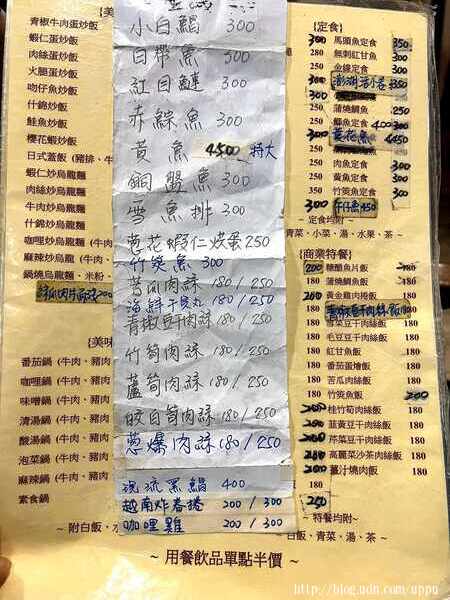 青椒牛肉蛋炒飯
蝦仁蛋炒飯
肉絲蛋炒飯
火腿蛋炒飯
吻仔魚炒飯
什錦炒飯
鮭魚炒飯
櫻花蝦炒飯
日式蓋飯 (豬排、牛
蝦仁炒烏龍麵
肉絲炒烏龍麵
牛肉炒烏龍麵
什錦炒烏龍麵
咖哩炒烏龍麵 (牛肉
麻辣炒烏龍麵 (牛肉
鍋燒烏龍麵、米粉
【美味
番茄鍋 (牛肉、豬肉
咖哩鍋 (牛肉、豬肉
味噌鍋 (牛肉、豬肉
清湯鍋 (牛肉、豬肉
酸湯鍋 (牛肉、豬肉
泡菜鍋 (牛肉、豬肉
麻辣鍋 (牛肉、豬肉
素食鍋
~ 附白飯、
小白鯧 300
白帶魚 300
紅目鰱 300
赤鯮魚 300
黃魚 4500 特大
銅盤魚 300
雪魚排 300
蔥花蝦仁烘蛋 250
竹筴魚 300
苦瓜肉絲 180/250
海鮮干貝丸 180/250
青椒豆干肉絲 180/250
竹筍肉絲 180/250
蘆筍肉絲 180/250
茭白筍肉絲 180/250
蔥爆肉絲 180/250
現流黑鯧 400
越南炸春捲 200/300
咖哩雞 200/300
【定食】
300 馬頭魚定食 350
300 無刺虱目魚定食
金線定食
300 澎湖 350
280 蒲燒鯛魚 250
280 鯛魚定食 400 300
300 黃花魚 450
280 肉魚定食
280 黃魚定食
280 竹筴魚定食
300 午仔魚 450
~ 定食均附 ~
青菜、小菜、湯、水果、茶
【商業特餐】
200 糖醋魚片飯 180
200 黃金雞肉捲飯 180
青椒豆干肉絲飯 180
200 雪菜豆干肉絲飯 180
200 毛豆豆干肉絲飯 180
200 紅甘魚飯 180
200 番茄蛋燴飯 180
200 苦瓜肉絲飯 180
竹筴魚飯 200
200 桂竹筍肉絲飯 180
200 韭黃豆干肉絲飯 180
200 芹菜豆干肉絲飯 180
200 高麗菜炒肉絲飯 180
200 薑汁燒肉飯 180
250
~ 特餐均附 ~
白飯、青菜、湯、茶
~ 用餐飲品單點半價 ~
http://blog.udn.com/uppu